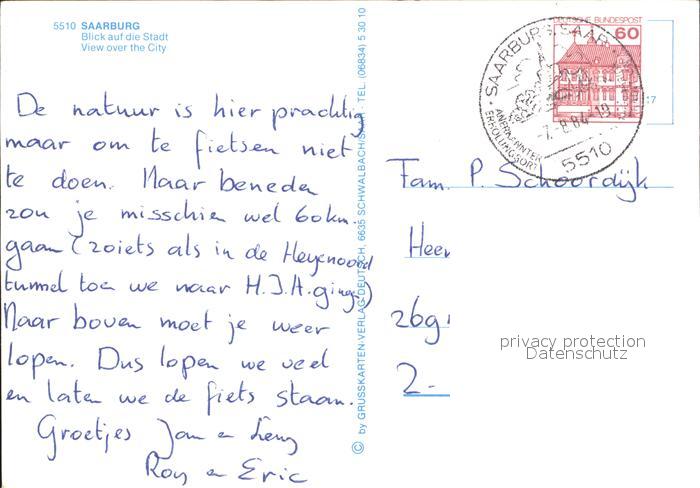 5510 SAARBURG
Blick auf die Stadt
View over the City
De natuur is hier prachtig
maar om te fietsen niet
te doen. Naar beneden
zou je misschien wel 60 km.
gaan (zoiets als in de Heyenoord
tunnel toen we naar H.I.A. gingen)
Naar boven moet je weer
lopen. Dus lopen we veel
en laten we de fiets staan.
Groetjes Jan en
Roy en Eric
© by GRUSSKARTEN-VERLAG-DEUTSCH, 6635 SCHWALBACH/SAAR - TEL. (06834) 5 30 10
DEUTSCHE BUNDESPOST
60
SAARBURG, SAAR
ANERKANNTER
ERHOLUNGSORT
-7.-8.84-19
5510
Fam. P. Schoordijk
Heer
26g
2-
privacy protection
Datenschutz